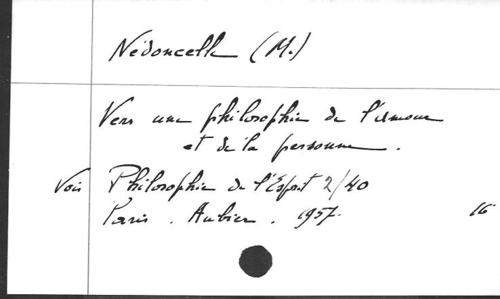 Nédoncelle (M.)
Vers une philosophie de l'amour
et de la personne.
Voir Philosophie de l'Esprit 2/40
Paris. Aubier. 1957. 16